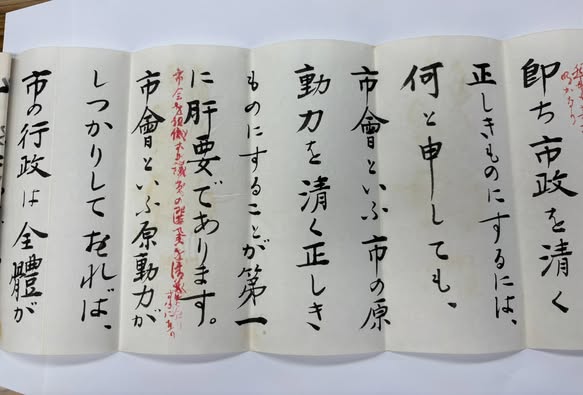 即ち市政を清く
正しきものにするには、
何と申しても、
市會といふ市の原
動力を清く正しき
ものにすることが第一
に肝要であります。
市會を組織する議員の選擧を清
市會といふ原動力が
しつかりしておれば、
市の行政は全體が